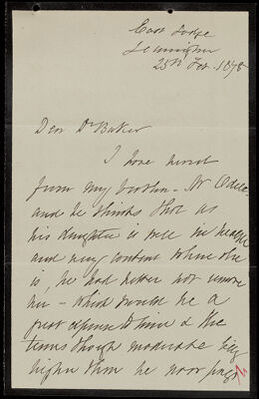 East Lodge
Leamington
25th Feb. 1878
Dear Dr Baker
I have heard
from my brother - Mr Odell
and he thinks that as
his daughter is well in health
and very content where she
is, he had better not remove
her - which would be a
great expense to him & the
terms though moderate being
higher than he now pays